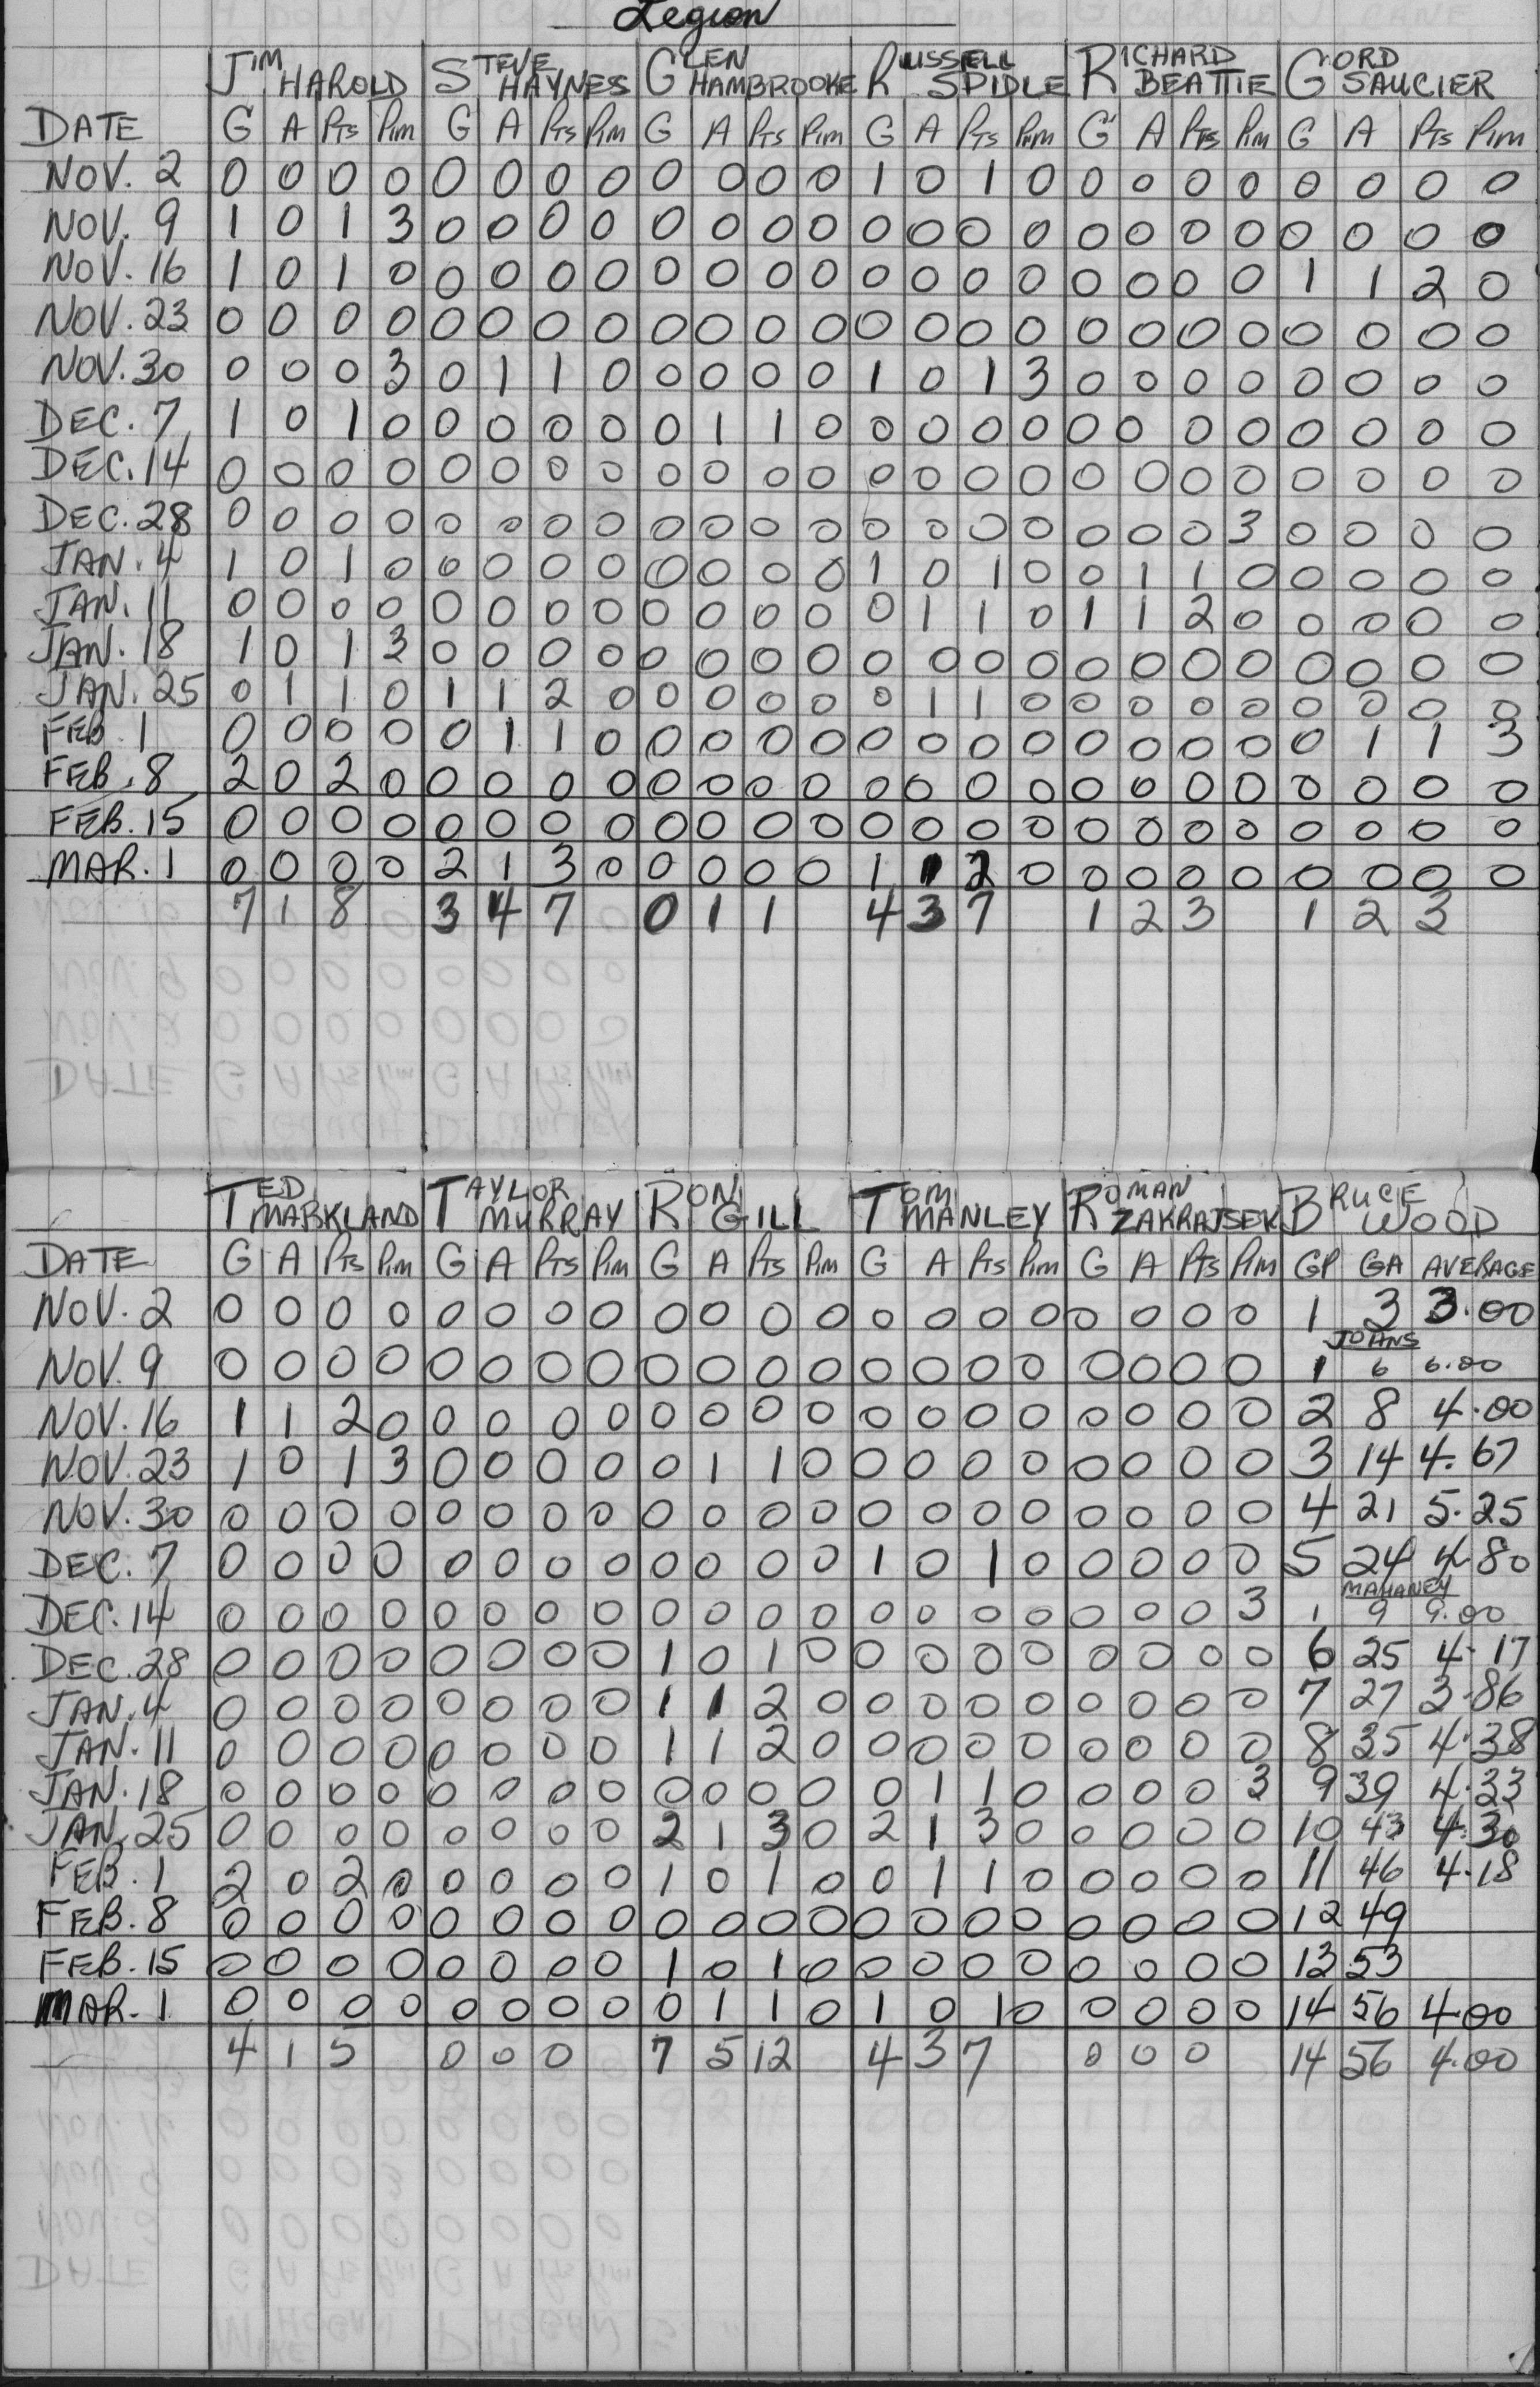 Legion
JIM HAROLD STEVE HAYNES GLEN HAMBROOKE RUSSELL SPIDLE RICHARD BEATTIE GORD SAUCIER
DATE G A PTS PIM G A PTS PIM G A PTS PIM G A PTS PIM G A PTS PIM G A PTS PIM
NOV. 2 0 0 0 0 0 0 0 0 0 0 0 0 1 0 1 0 0 0 0 0 0 0 0 0
NOV. 9 1 0 1 3 0 0 0 0 0 0 0 0 0 0 0 0 0 0 0 0 0 0 0 0
NOV. 16 1 0 1 0 0 0 0 0 0 0 0 0 0 0 0 0 0 0 0 0 1 1 2 0
NOV. 23 0 0 0 0 0 0 0 0 0 0 0 0 0 0 0 0 0 0 0 0 0 0 0 0
NOV. 30 0 0 0 3 0 1 1 0 0 0 0 0 1 0 1 3 0 0 0 0 0 0 0 0
DEC. 7 1 0 1 0 0 0 0 0 0 1 1 0 0 0 0 0 0 0 0 0 0 0 0 0
DEC. 14 0 0 0 0 0 0 0 0 0 0 0 0 0 0 0 0 0 0 0 0 0 0 0 0
DEC. 28 0 0 0 0 0 0 0 0 0 0 0 0 0 0 0 0 0 0 0 3 0 0 0 0
JAN. 4 1 0 1 0 0 0 0 0 0 0 0 0 1 0 1 0 0 1 1 0 0 0 0 0
JAN. 11 0 0 0 0 0 0 0 0 0 0 0 0 0 1 1 0 1 1 2 0 0 0 0 0
JAN. 18 1 0 1 3 0 0 0 0 0 0 0 0 0 0 0 0 0 0 0 0 0 0 0 0
JAN. 25 0 1 1 0 1 1 2 0 0 0 0 0 0 1 1 0 0 0 0 0 0 0 0 0
FEB. 1 0 0 0 0 0 1 1 0 0 0 0 0 0 0 0 0 0 0 0 0 0 1 1 3
FEB. 8 2 0 2 0 0 0 0 0 0 0 0 0 0 0 0 0 0 0 0 0 0 0 0 0
FEB. 15 0 0 0 0 0 0 0 0 0 0 0 0 0 0 0 0 0 0 0 0 0 0 0 0
MAR. 1 0 0 0 0 2 1 3 0 0 0 0 0 1 1 2 0 0 0 0 0 0 0 0 0
7 1 8 3 4 7 0 1 1 4 3 7 1 2 3 1 2 3
TED MARKLAND TAYLOR MURRAY RON GILL TOM MANLEY ROMAN ZAKRAJSEK BRUCE WOOD
DATE G A PTS PIM G A PTS PIM G A PTS PIM G A PTS PIM G A PTS PIM GP GA AVERAGE
NOV. 2 0 0 0 0 0 0 0 0 0 0 0 0 0 0 0 0 0 0 0 0 1 3 3.00
JOANS
NOV. 9 0 0 0 0 0 0 0 0 0 0 0 0 0 0 0 0 0 0 0 0 1 6 6.00
NOV. 16 1 1 2 0 0 0 0 0 0 0 0 0 0 0 0 0 0 0 0 0 2 8 4.00
NOV. 23 1 0 1 3 0 0 0 0 0 1 1 0 0 0 0 0 0 0 0 0 3 14 4.67
NOV. 30 0 0 0 0 0 0 0 0 0 0 0 0 0 0 0 0 0 0 0 0 4 21 5.25
DEC. 7 0 0 0 0 0 0 0 0 0 0 0 0 1 0 1 0 0 0 0 0 5 24 4.80
MAHANEY
DEC. 14 0 0 0 0 0 0 0 0 0 0 0 0 0 0 0 0 0 0 0 3 1 9 9.00
DEC. 28 0 0 0 0 0 0 0 0 1 0 1 0 0 0 0 0 0 0 0 0 6 25 4.17
JAN. 4 0 0 0 0 0 0 0 0 1 1 2 0 0 0 0 0 0 0 0 0 7 27 3.86
JAN. 11 0 0 0 0 0 0 0 0 1 1 2 0 0 0 0 0 0 0 0 0 8 35 4.38
JAN. 18 0 0 0 0 0 0 0 0 0 0 0 0 0 1 1 0 0 0 0 3 9 39 4.33
JAN. 25 0 0 0 0 0 0 0 0 2 1 3 0 2 1 3 0 0 0 0 0 10 43 4.30
FEB. 1 2 0 2 0 0 0 0 0 1 0 1 0 0 1 1 0 0 0 0 0 11 46 4.18
FEB. 8 0 0 0 0 0 0 0 0 0 0 0 0 0 0 0 0 0 0 0 0 12 49
FEB. 15 0 0 0 0 0 0 0 0 1 0 1 0 0 0 0 0 0 0 0 0 13 53
MAR. 1 0 0 0 0 0 0 0 0 0 1 1 0 1 0 1 0 0 0 0 0 14 56 4.00
4 1 5 0 0 0 7 5 12 4 3 7 0 0 0 14 56 4.00